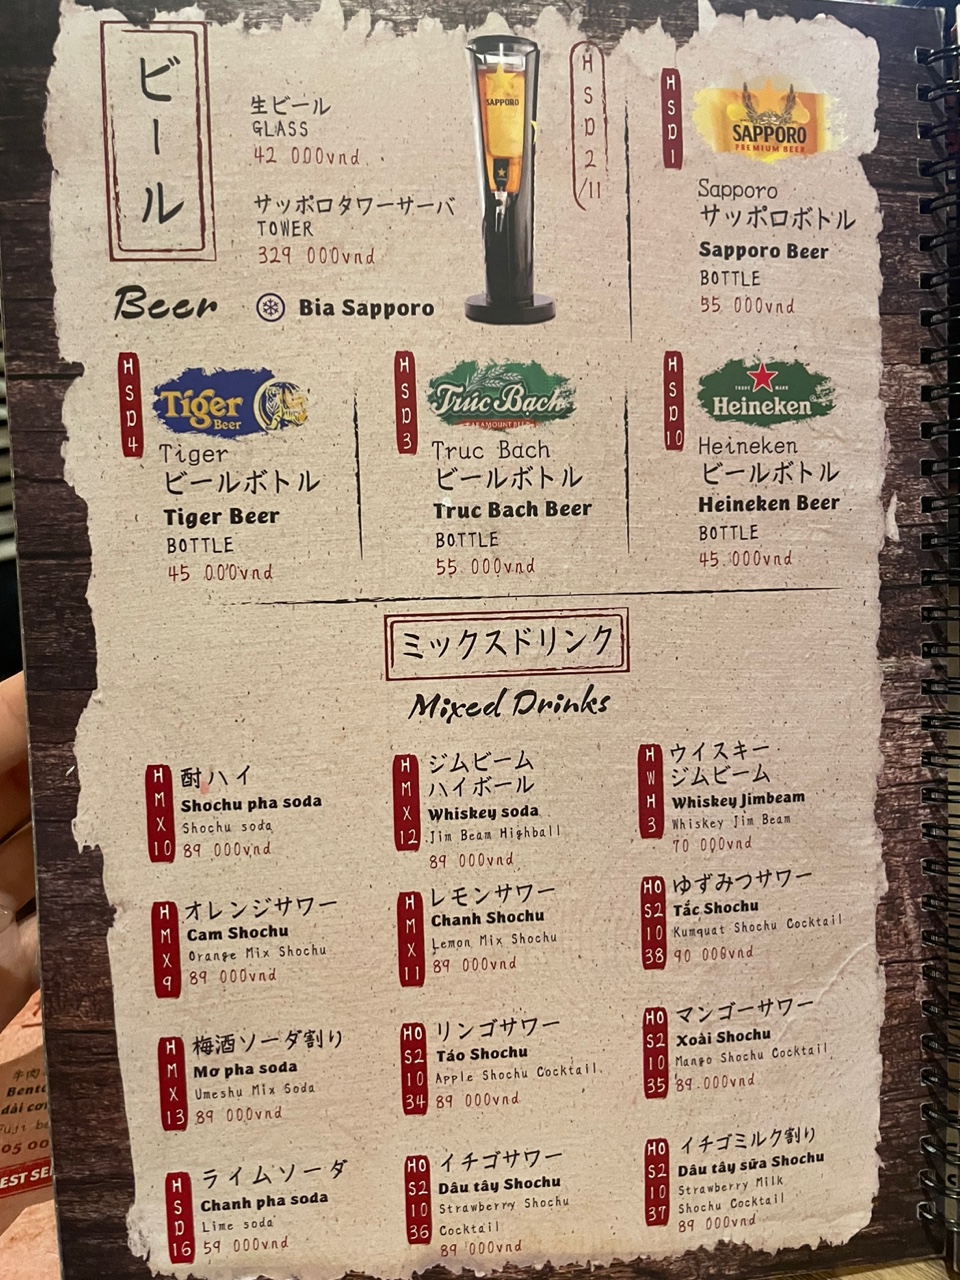 ビール
Beer
生ビール
GLASS
42 000vnd
サッポロタワーサーバ
TOWER
329 000vnd
Bia Sapporo
SAPPORO
HSD2/11
HSD1
SAPPORO
PREMIUM BEER
Sapporo
サッポロボトル
Sapporo Beer
BOTTLE
55 000vnd
HSD4
Tiger
Beer
Tiger
ビールボトル
Tiger Beer
BOTTLE
45 000vnd
HSD3
Truc Bach
PARAMOUNT BEER
Truc Bach
ビールボトル
Truc Bach Beer
BOTTLE
55 000vnd
HSD10
TRADE MARK
Heineken
Heineken
ビールボトル
Heineken Beer
BOTTLE
45 000vnd
ミックスドリンク
Mixed Drinks
HMX10
酎ハイ
Shochu pha soda
Shochu soda
89 000vnd
HMX12
ジムビーム
ハイボール
Whiskey soda
Jim Beam Highball
89 000vnd
HWH3
ウイスキー
ジムビーム
Whiskey Jimbeam
Whiskey Jim Beam
70 000vnd
HMX9
オレンジサワー
Cam Shochu
Orange Mix Shochu
89 000vnd
HMX11
レモンサワー
Chanh Shochu
Lemon Mix Shochu
89 000vnd
HOS21038
ゆずみつサワー
Tắc Shochu
Kumquat Shochu Cocktail
90 000vnd
HMX13
梅酒ソーダ割り
Mơ pha soda
Umeshu Mix Soda
89 000vnd
HOS21034
リンゴサワー
Táo Shochu
Apple Shochu Cocktail
89 000vnd
HOS21035
マンゴーサワー
Xoài Shochu
Mango Shochu Cocktail
89 000vnd
HSD16
ライムソーダ
Chanh pha soda
Lime soda
59 000vnd
HOS21036
イチゴサワー
Dâu tây Shochu
Strawberry Shochu
Cocktail
89 000vnd
HOS21037
イチゴミルク割り
Dâu tây sữa Shochu
Strawberry Milk
Shochu Cocktail
89 000vnd